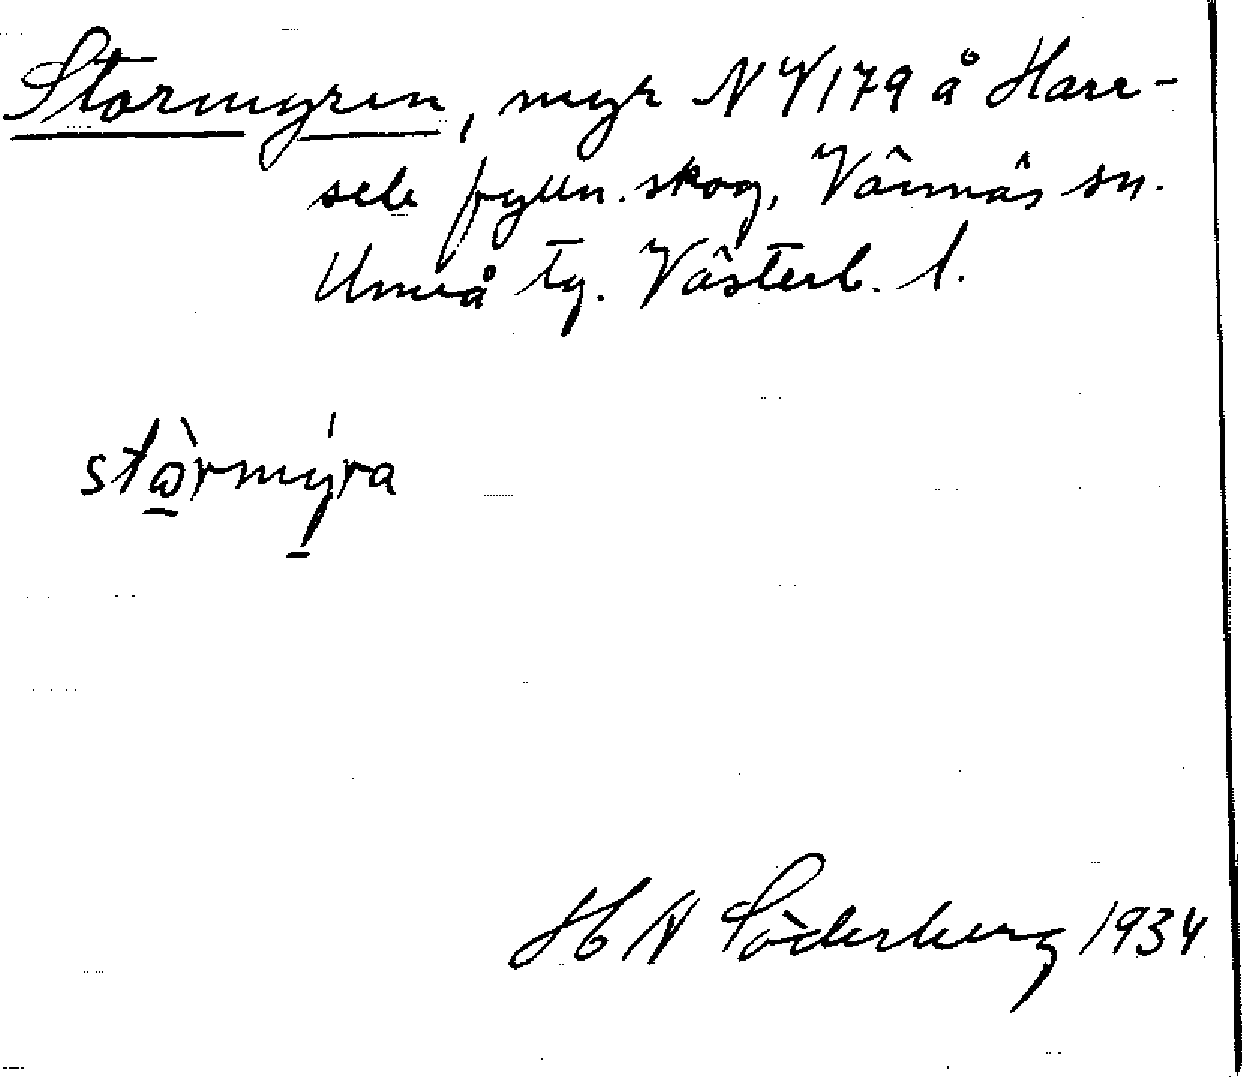 Stormyren, myr NV179 å Harr-
sele fylln. skog, Vännäs sn.
Umeå tg. Västerb. l.
stòrmy̍ra
H A Söderberg 1934